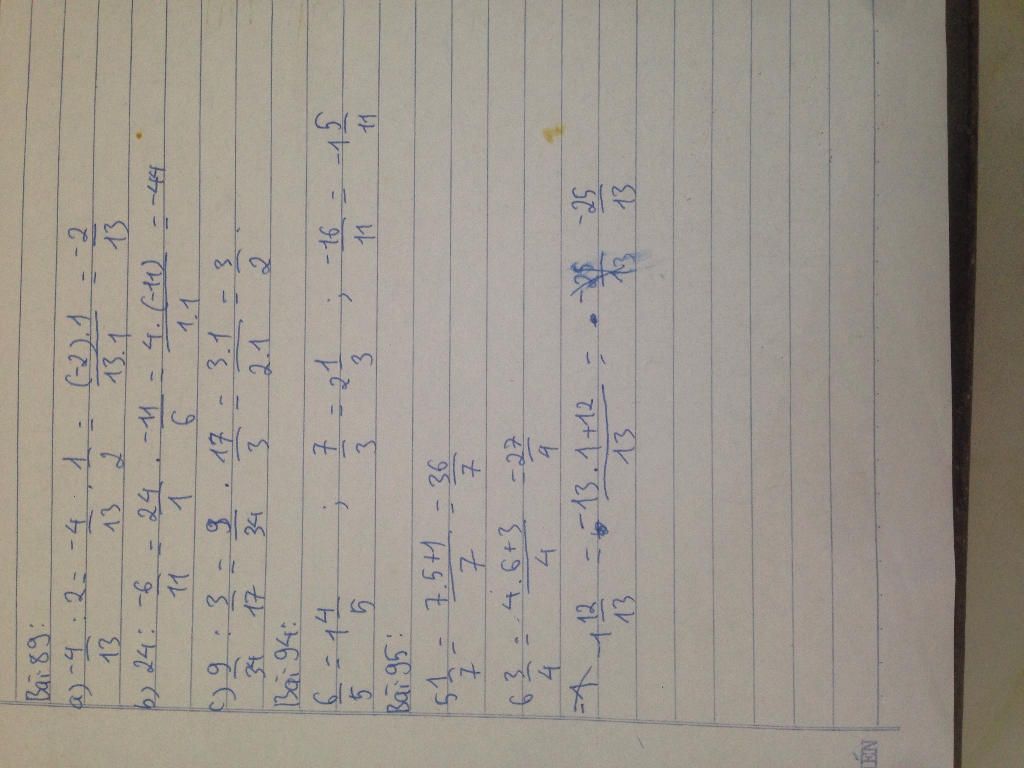 Bài 89:
a) -4/13 : 2 = -4/13 . 1/2 = (-2).1/13.1 = -2/13
b) 24 : -6/11 = 24/1 . -11/6 = 4.(-11)/1.1 = -44
c) 9/34 : 3/17 = 9/34 . 17/3 = 3.1/2.1 = 3/2.
Bài 94:
6/5 = 1 4/5 ; 7/3 = 2 1/3 ; -16/11 = -1 5/11
Bài 95:
5 1/7 = 7.5+1/7 = 36/7
6 3/4 = 4.6+3/4 = 27/4
-1 12/13 = -13.1+12/13 = -25/13
ÉN